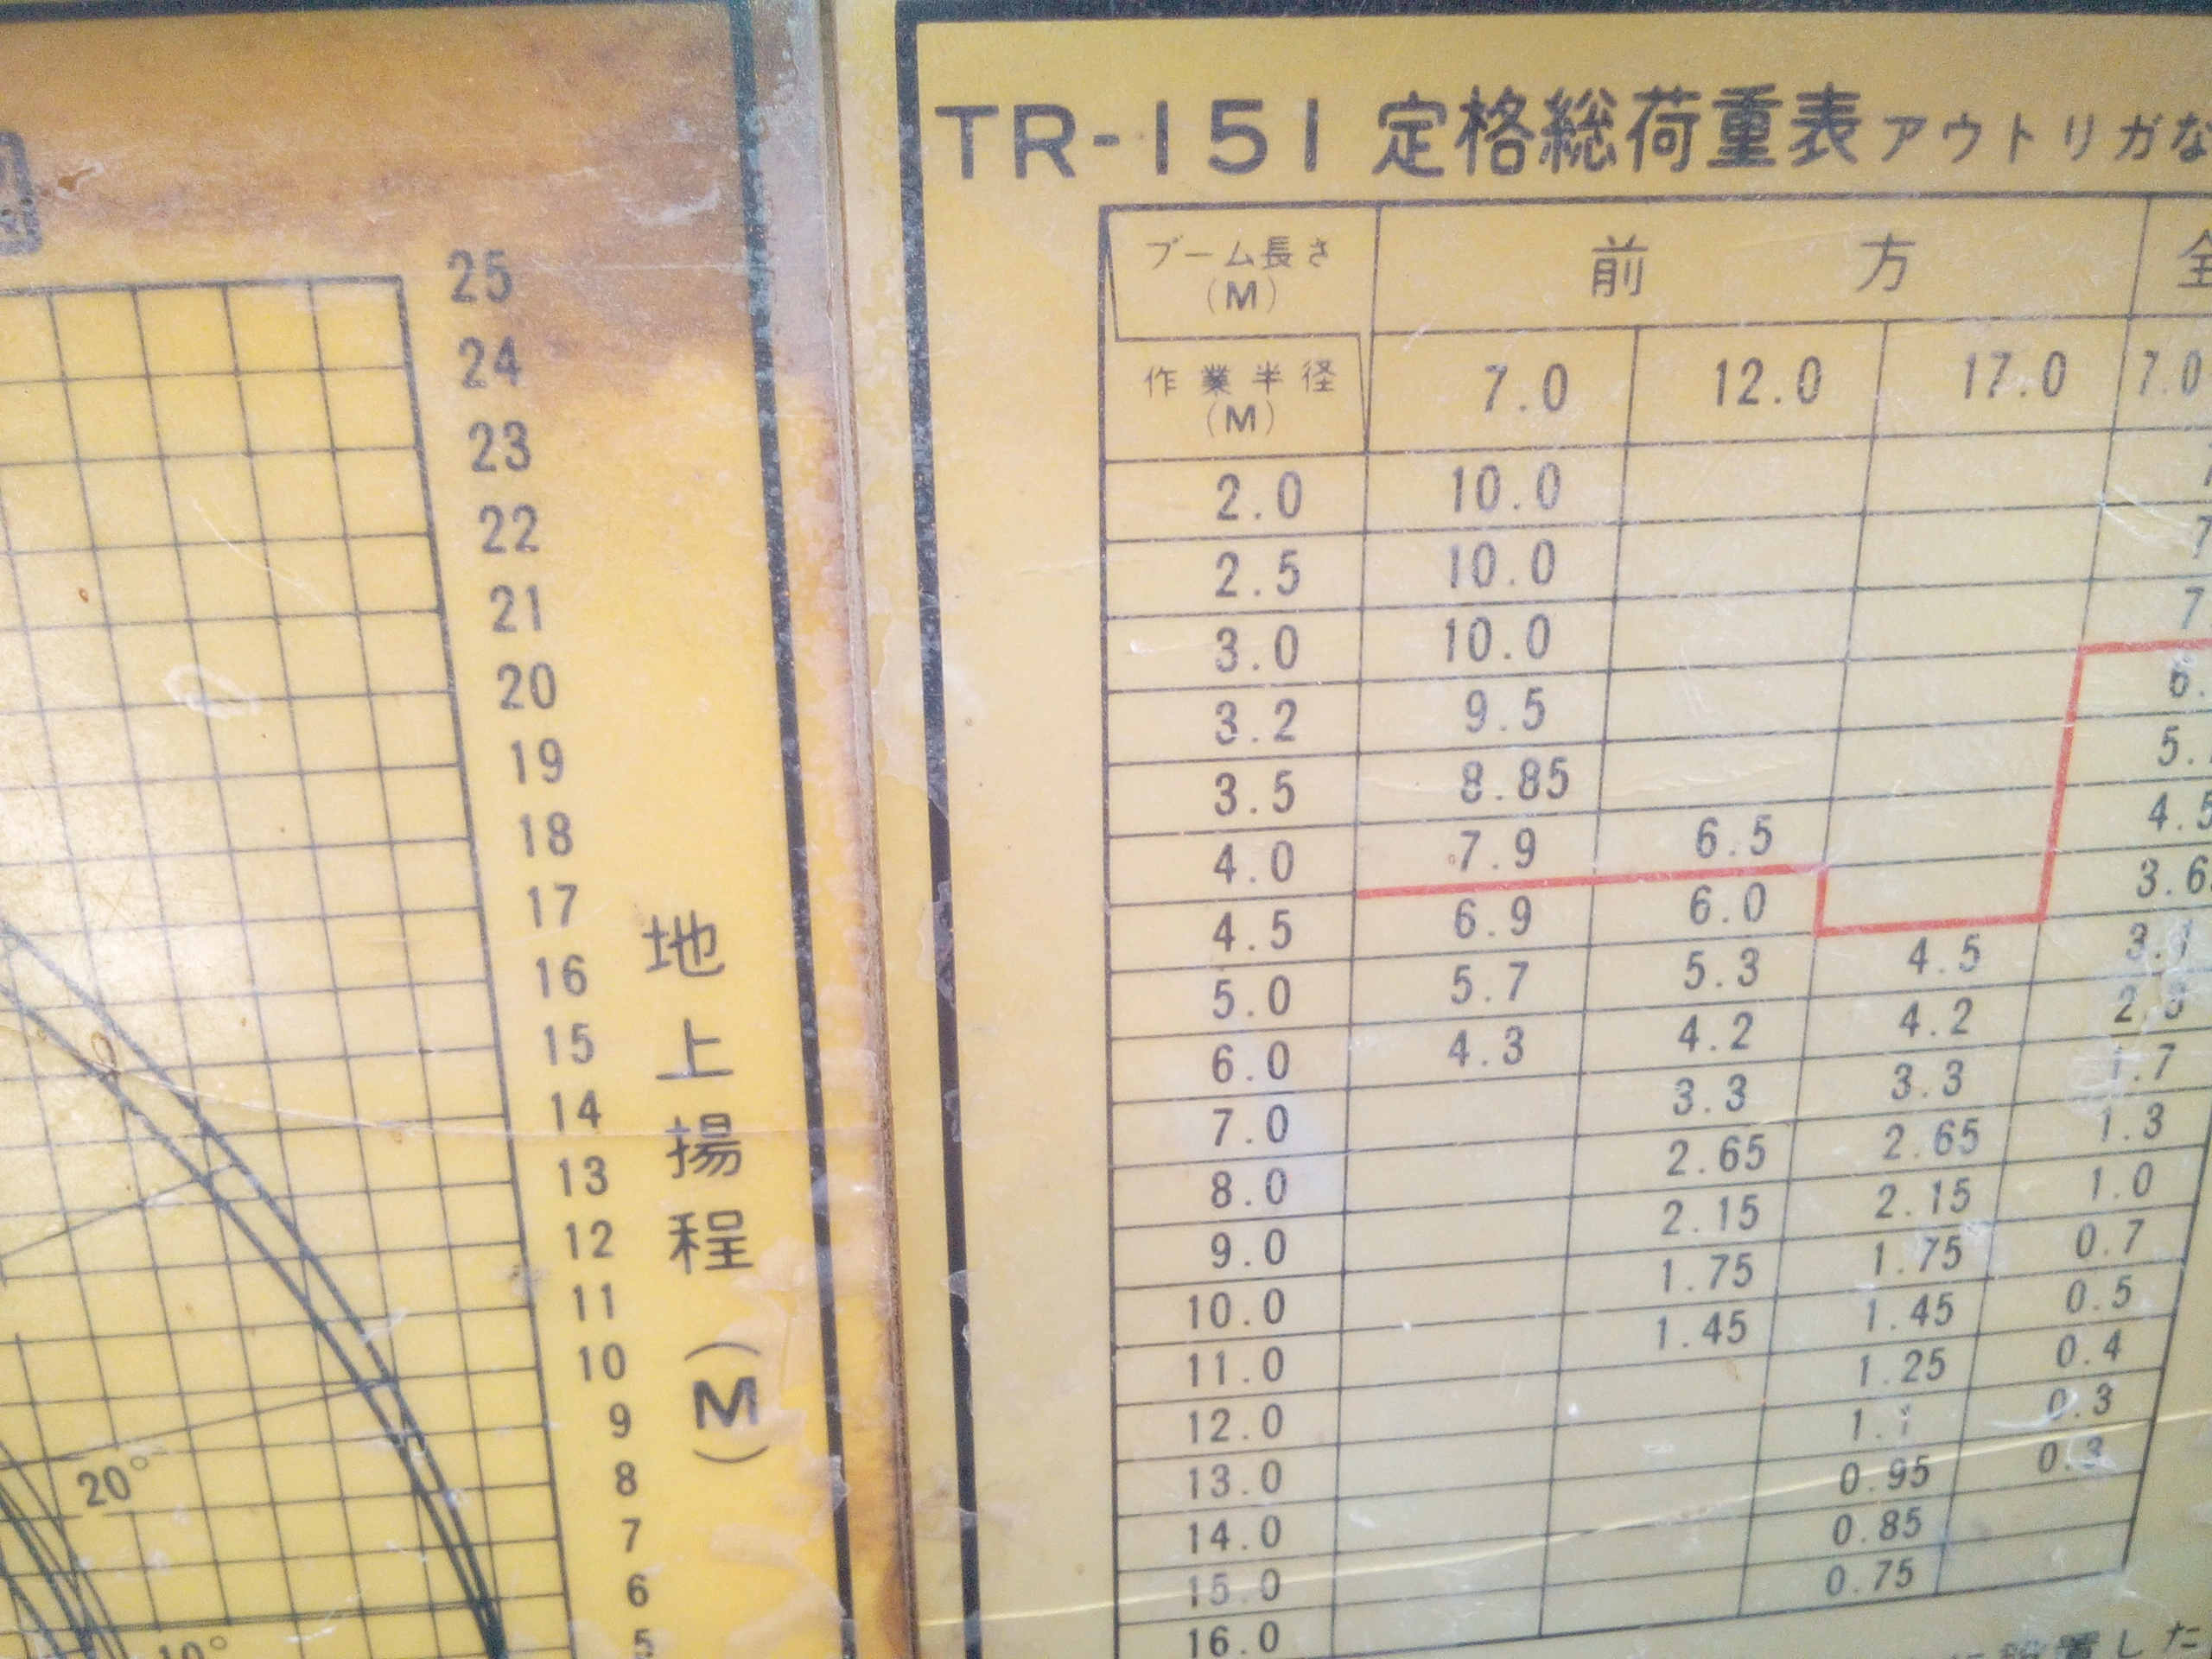 25
24
23
22
21
20
19
18
17
16
15
14
13
12
11
10
9
8
7
6
5
地上揚程(M)
20°
10°
TR-151 定格総荷重表 アウトリガな
ブーム長さ (M) 前方 全
作業半径 (M) 7.0 12.0 17.0 7.0
2.0 10.0
2.5 10.0 7
3.0 10.0 7
3.2 9.5 6.
3.5 8.85 5.
4.0 7.9 6.5 4.5
4.5 6.9 6.0 3.6
5.0 5.7 5.3 4.5 3.1
6.0 4.3 4.2 4.2
7.0 3.3 3.3 1.7
8.0 2.65 2.65 1.3
9.0 2.15 2.15 1.0
10.0 1.75 1.75 0.7
11.0 1.45 1.45 0.5
12.0 1.25 0.4
13.0 1.1 0.3
14.0 0.95 0.3
15.0 0.85
16.0 0.75
設置した